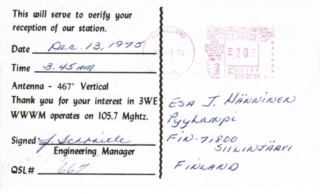 This will serve to verify your
reception of our station.
Date Dec. 13, 1975
Time 3:45 AM
Antenna - 467' Vertical
Thank you for your interest in 3WE
WWWM operates on 105.7 Mghtz.
Signed
Engineering Manager
QSL# 667
20
ESA J. HÄNNINEN
Pyylampi
FIN-71800
SIILINJÄRVI
FINLAND